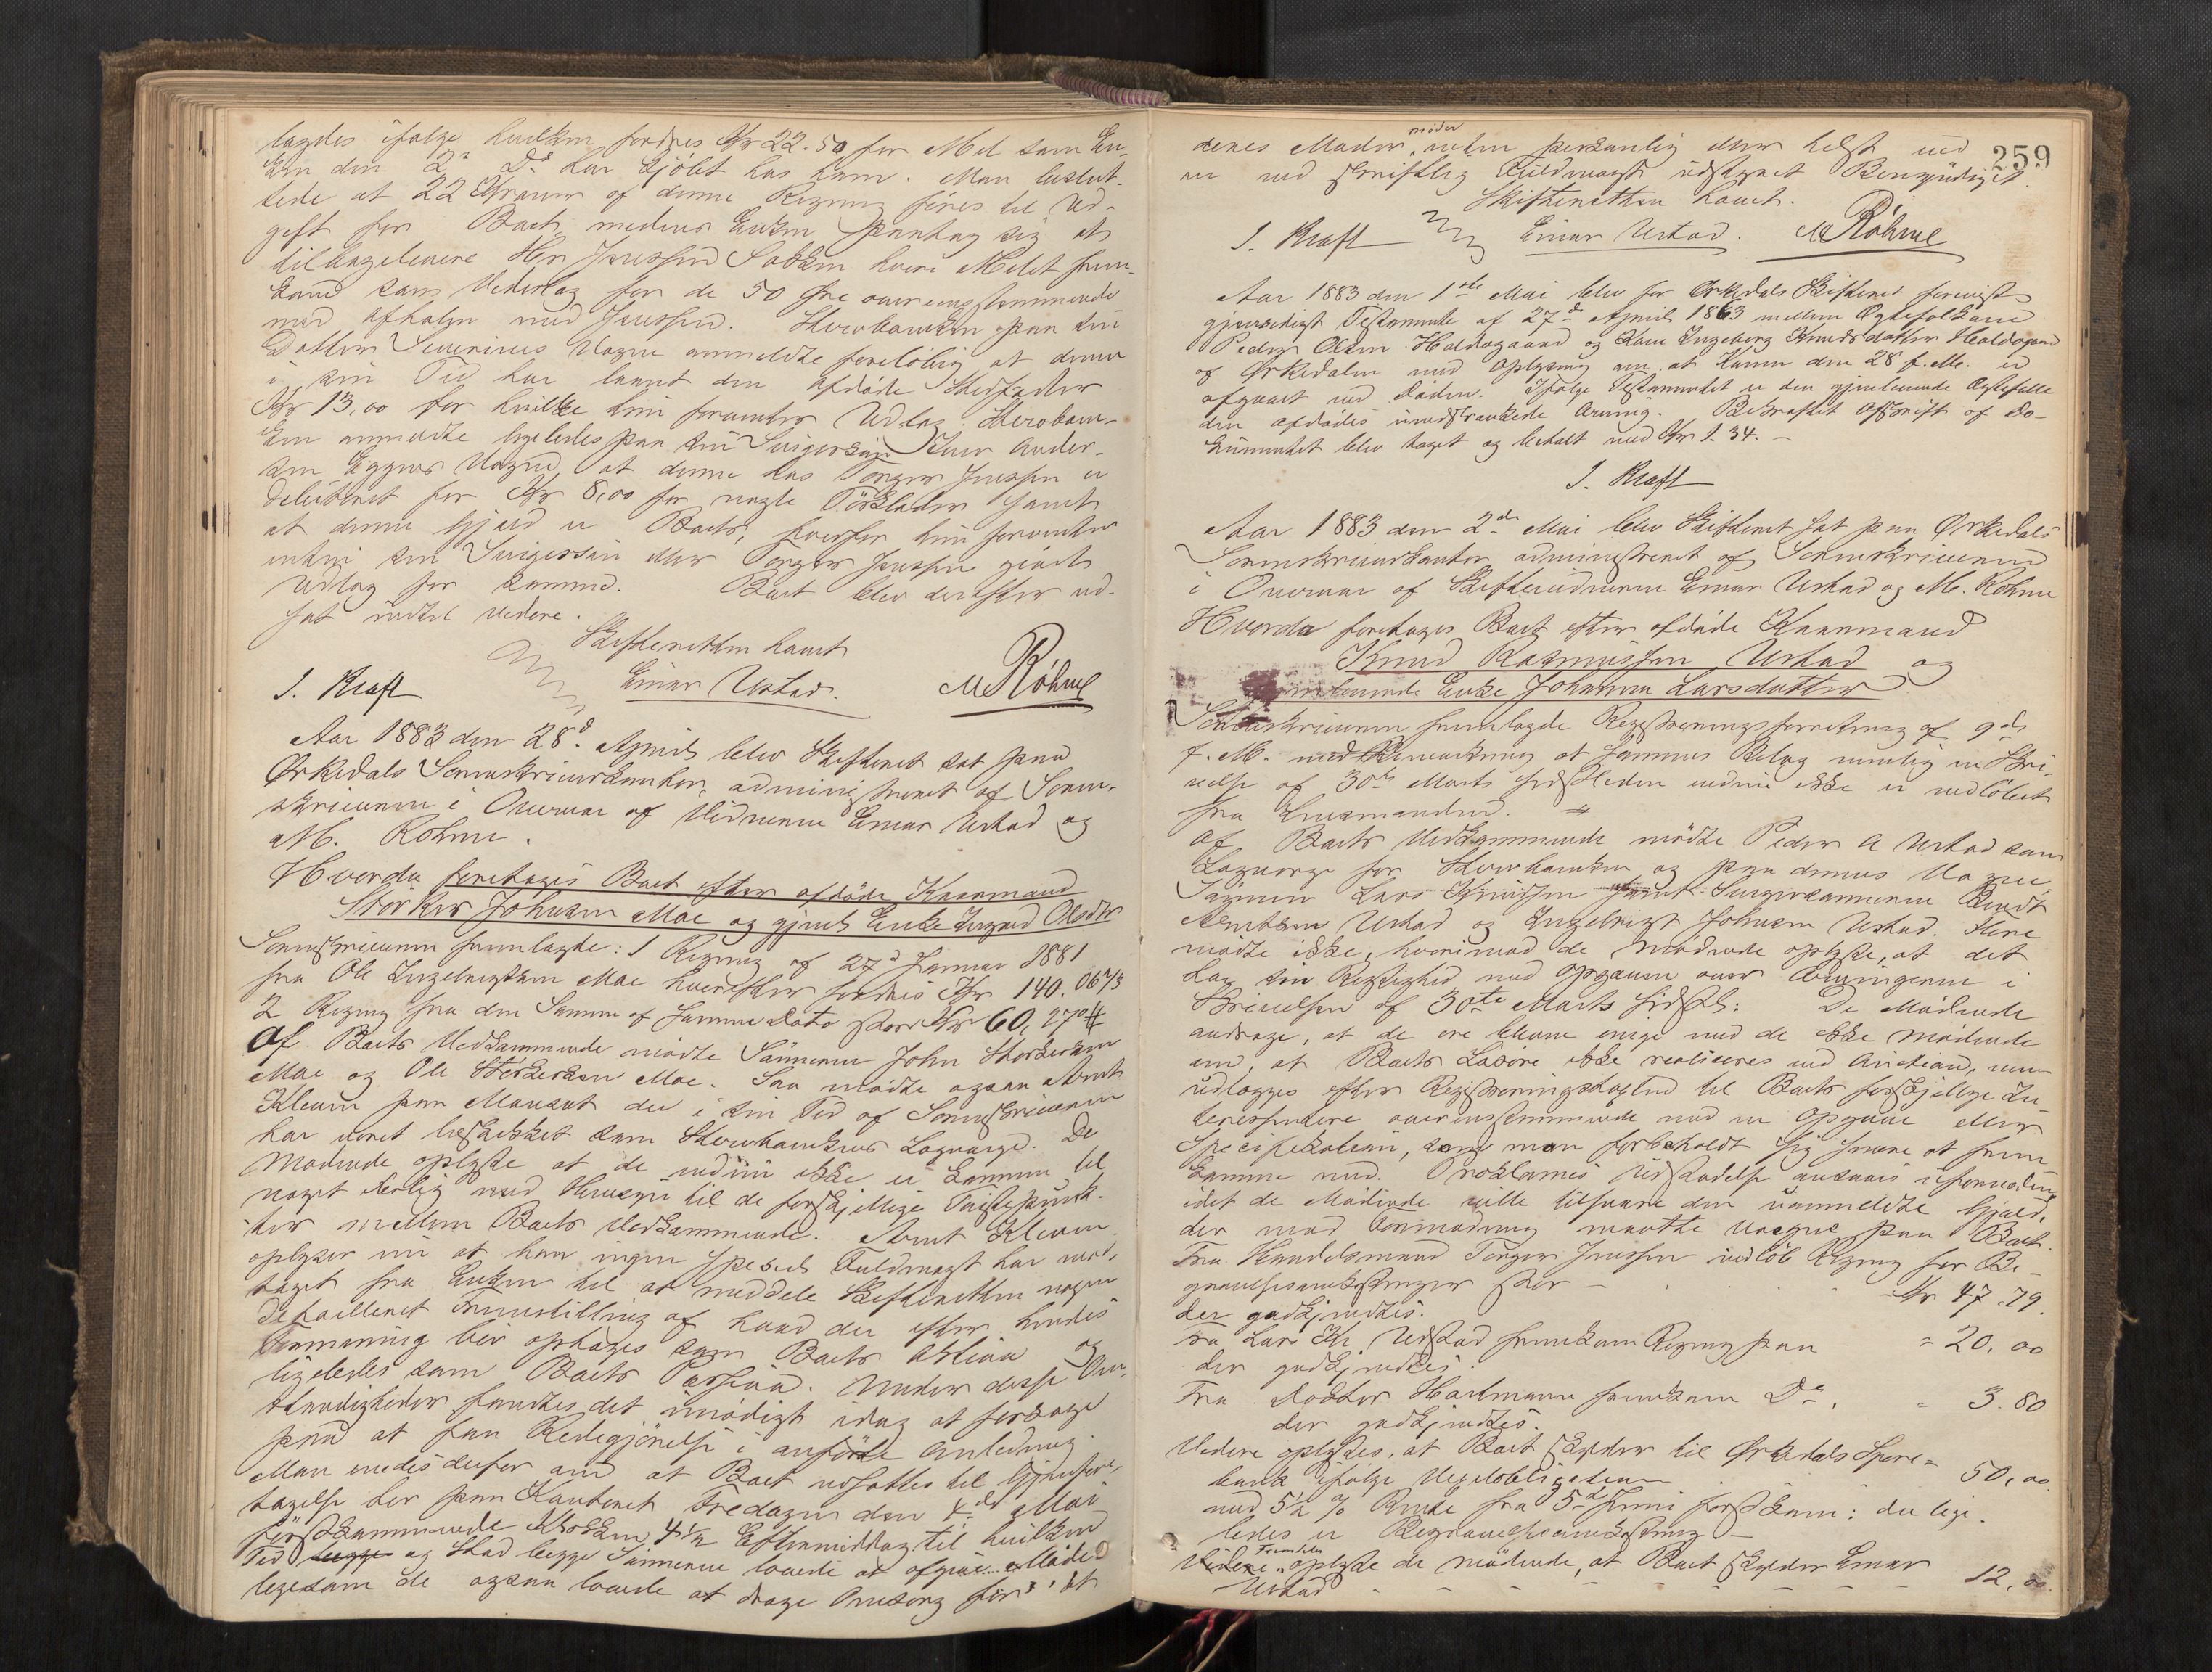 lagdes ifølge hvilken fordres Kr 22.50 for Mel som En-
ken den 2 D. har kjöbt hos ham. Man beslut-
tede at 22 Kroner af denne Regning föres til Ud-
gift for Boet, medens Enken paatog sig at
tilbagelevere Hr Jenssen Sækken hvori Melet frem-
kom som Vederlag for de 50 Øre overensstemmende
med Aftalen med Jenssen. Storbonken paa sin
Datter Severines Vegne anmeldte foreløbig at denne
i sin Tid har laant den afdøde Stedfader
Kr 13,00 for hvilke hun forventer Udlæg.
anmeldte ligeledes paa sin Svigersøn Ander-
sen Eggens Vegne, at denne hos Torger Jenssen er
debiteret for Kr 8,00 for nogle Törklæder samt
at denne Gjæld er Boets, hvorfor hun forventer
enten sin Svigersøn eller Torger Jenssen gjort
Udlæg for samme. Boet blev derefter ud-
sat indtil videre.
Skifteretten hævet
J. Kraft Einar Ustad. M Röhme
Aar 1883 den 28d. April blev Skifteret sat paa
Ørkedals Sorenskriverkontor, administreret af Soren-
skriveren i Overvær af Vidnerne Einar Ustad og
M. Röhme.
Hvorda foretoges Boet efter afdøde Kaarmand
Störker Johnsen Moe og gjenl. Enke Ingrid Olsdtr
Sorenskriveren fremlagde: 1 Regning af 27d Januar 1881
fra Ole Ingebrigtsen Moe hvorefter fordres Kr 140.06 2/3
2 Regning fra den Samme af samme Dato stor Kr 60,27
Af Boets Vedkommende mödte Sønnerne John Störkersen
Moe og Ole Störkersen Moe. Saa mödte ogsaa Arnt
Kleven paa Mansset der i sin Tid af Sorenskriveren
har været beskikket som Laugværge. De
Mødende oplyste at de endnu ikke er kommen til
noget Forlig med Hensyn til de forskjellige Tvistepunk-
ter mellem Boets Vedkommende. Arnt Kleven
oplyser nu at han ingen speciel Fuldmagt har mod-
taget fra Enken til at meddele Skifteretten nogen
detailleret Fremstilling af hvad der efter hendes
Formening bör optages som Boets Aktiva og
ligeledes som Boets Passiva. Under disse Om-
stændigheder fandtes det unödigt idag at forsøge
paa at faa Redegjörelse i anförte Anledning.
Man enedes derfor om at Boet udsattes til Gjenfore-
tagelse her paa Kontoret Fredagen den 4de Mai
förstkommende Klokken 4½ Eftermiddag til hvilken
Tid og Sted begge Sønnerne lovede at afgive Møde
ligesom de ogsaa lovede at drage Omsorg for, at
259
deres Moder møder enten personlig eller helst ved
en med skriftlig Fuldmagt udstyret Befuldmægtiget.
Skifteretten hævet.
J. Kraft Einar Ustad. M Röhme
Aar 1883 den 1ste Mai blev for Ørkedals Skifteret forevist
gjensidigt Testamente af 27d April 1863 mellem Ægtefolkene
Peder Olsen Holdegaard og Kone Ingeborg Knudsdatter Holdegaard
af Ørkedalen med Oplysning om at Konen den 28 f. M. er
afgaaet ved Döden. Ifølge Testamentet er den gjenlevende Ægtefælle
den afdødes uindskrænkede Arving. Bekræftet Afskrift af Do-
kumentet blev taget og betalt med Kr 1.34. –
J. Kraft
Aar 1883 den 2den Mai blev Skifteret sat paa Ørkedals
Sorenskriverkontor administreret af Sorenskriveren
i Overvær af Skiftevidnerne Einar Ustad og M. Röhme
Hvorda foretoges Boet efter afdøde Kaarmand
Knud Rasmussen Ustad og
gjenlevende Enke Johanna Larsdatter
Sorenskriveren fremlagde Registreringsforretning af 9de
f. M. med Bemærkning at sammes Bilag nemlig en Skri-
velse af 30te Marts sidstleden endnu ikke er indløbet
fra Lensmanden.
Af Boets Vedkommende mödte Peder A Ustad som
Laugværge for og paa dennes Vegne,
Sønnen Lars Knudsen samt Svigersønnerne Bendt
Arntsen Ustad og Ingebrigt Johnsen Ustad. Flere
mødte ikke, hvorimod de Mødende oplyste, at det
har sin Rigtighed med Opgaven over Arvingerne i
Skrivelsen af 30te Marts sidstl: De Mödende
androge, at de ere blevne enige med de ikke mödende
om, at Boets Løsöre ikke realiseres ved Auktion, men
udlægges efter Registreringstaxten til Boets forskjellige In-
teressentere overensstemmende med en Opgave eller
Specifikation, som man forbeholdt sig senere at frem-
komme med. Proklamas Udstædelse ansaaes ufornøden,
idet de Mödende ville tilsvare den uanmeldte Gjæld,
der mod Formodning maatte vorde paa Boet.
Fra Handelsmand Torger Jenssen indløb Regning for Be-
gravelsesomkostninger stor – Kr 47.79.
der godkjendtes.
Fra Lars K. Ustad fremkom Regning paa " 20,00
der godkjendtes.
Fra Doktor Hartmann fremkom Do. " 3.80
der godkjendtes.
Videre oplystes, at Boet skylder til Ørkedals Spare-
bank ifölge Vexelobligation 50,00
med 5½ % Rente fra 5te Juni förstkom: der lige-
ledes er Begravelsesomkostning –
Fremdeles oplyste de mödende, at Boet skylder Einar
Ustad - - - - - - - 12,00.